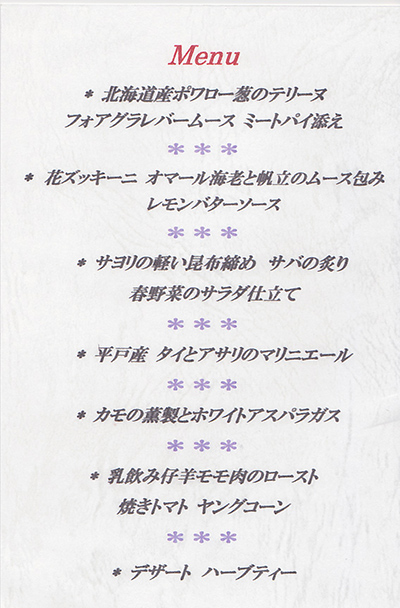 Menu
* 北海道産ポワロー葱のテリーヌ
フォアグラレバームース ミートパイ添え
***
* 花ズッキーニ オマール海老と帆立のムース包み
レモンバターソース
***
* サヨリの軽い昆布締め サバの炙り
春野菜のサラダ仕立て
***
* 平戸産 タイとアサリのマリニエール
***
* カモの薫製とホワイトアスパラガス
***
* 乳飲み仔羊モモ肉のロースト
焼きトマト ヤングコーン
***
* デザート ハーブティー